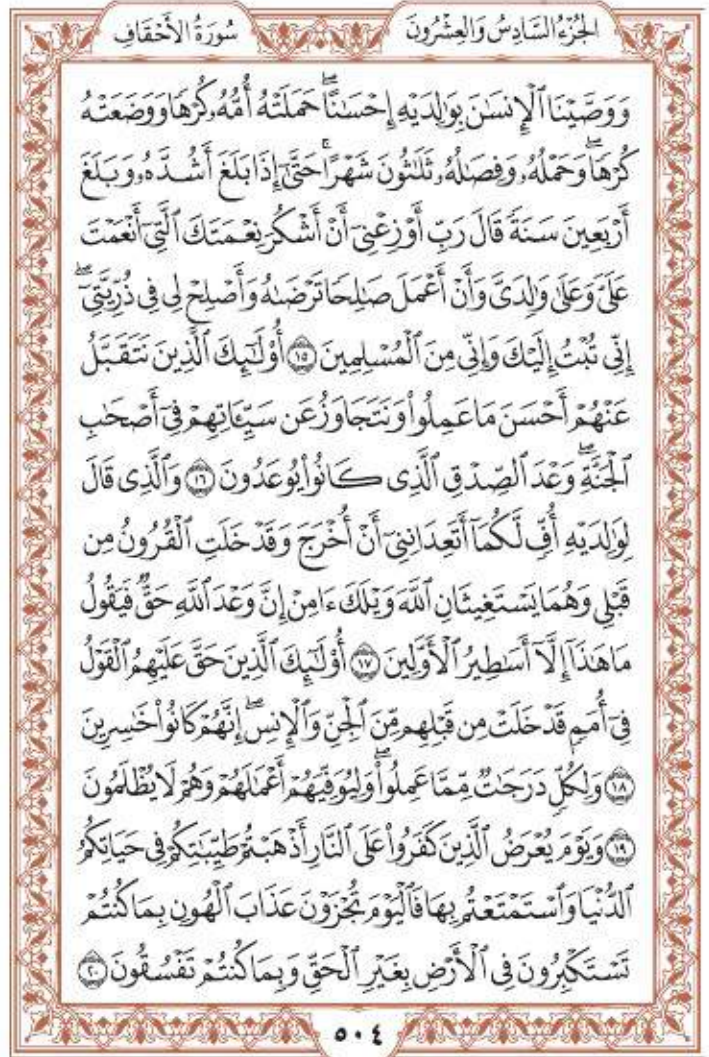 الجُزْءُ السَّادِسُ وَالعِشْرُونَ سُورَةُ الأَحْقَافِ
وَوَصَّيْنَا ٱلْإِنسَٰنَ بِوَٰلِدَيْهِ إِحْسَٰنًاۖ حَمَلَتْهُ أُمُّهُۥ كُرْهًا وَوَضَعَتْهُ
كُرْهًاۖ وَحَمْلُهُۥ وَفِصَٰلُهُۥ ثَلَٰثُونَ شَهْرًاۚ حَتَّىٰٓ إِذَا بَلَغَ أَشُدَّهُۥ وَبَلَغَ
أَرْبَعِينَ سَنَةً قَالَ رَبِّ أَوْزِعْنِىٓ أَنْ أَشْكُرَ نِعْمَتَكَ ٱلَّتِىٓ أَنْعَمْتَ
عَلَىَّ وَعَلَىٰ وَٰلِدَىَّ وَأَنْ أَعْمَلَ صَٰلِحًا تَرْضَىٰهُ وَأَصْلِحْ لِى فِى ذُرِّيَّتِىٓۖ
إِنِّى تُبْتُ إِلَيْكَ وَإِنِّى مِنَ ٱلْمُسْلِمِينَ ١٥ أُو۟لَٰٓئِكَ ٱلَّذِينَ نَتَقَبَّلُ
عَنْهُمْ أَحْسَنَ مَا عَمِلُوا۟ وَنَتَجَاوَزُ عَن سَيِّـَٔاتِهِمْ فِىٓ أَصْحَٰبِ
ٱلْجَنَّةِۖ وَعْدَ ٱلصِّدْقِ ٱلَّذِى كَانُوا۟ يُوعَدُونَ ١٦ وَٱلَّذِى قَالَ
لِوَٰلِدَيْهِ أُفٍّ لَّكُمَآ أَتَعِدَانِنِىٓ أَنْ أُخْرَجَ وَقَدْ خَلَتِ ٱلْقُرُونُ مِن
قَبْلِى وَهُمَا يَسْتَغِيثَانِ ٱللَّهَ وَيْلَكَ ءَامِنْ إِنَّ وَعْدَ ٱللَّهِ حَقٌّ فَيَقُولُ
مَا هَٰذَآ إِلَّآ أَسَٰطِيرُ ٱلْأَوَّلِينَ ١٧ أُو۟لَٰٓئِكَ ٱلَّذِينَ حَقَّ عَلَيْهِمُ ٱلْقَوْلُ
فِىٓ أُمَمٍ قَدْ خَلَتْ مِن قَبْلِهِم مِّنَ ٱلْجِنِّ وَٱلْإِنسِۖ إِنَّهُمْ كَانُوا۟ خَٰسِرِينَ
١٨ وَلِكُلٍّ دَرَجَٰتٌ مِّمَّا عَمِلُوا۟ۖ وَلِيُوَفِّيَهُمْ أَعْمَٰلَهُمْ وَهُمْ لَا يُظْلَمُونَ
١٩ وَيَوْمَ يُعْرَضُ ٱلَّذِينَ كَفَرُوا۟ عَلَى ٱلنَّارِ أَذْهَبْتُمْ طَيِّبَٰتِكُمْ فِى حَيَاتِكُمُ
ٱلدُّنْيَا وَٱسْتَمْتَعْتُم بِهَا فَٱلْيَوْمَ تُجْزَوْنَ عَذَابَ ٱلْهُونِ بِمَا كُنتُمْ
تَسْتَكْبِرُونَ فِى ٱلْأَرْضِ بِغَيْرِ ٱلْحَقِّ وَبِمَا كُنتُمْ تَفْسُقُونَ ٢٠
٥٠٤